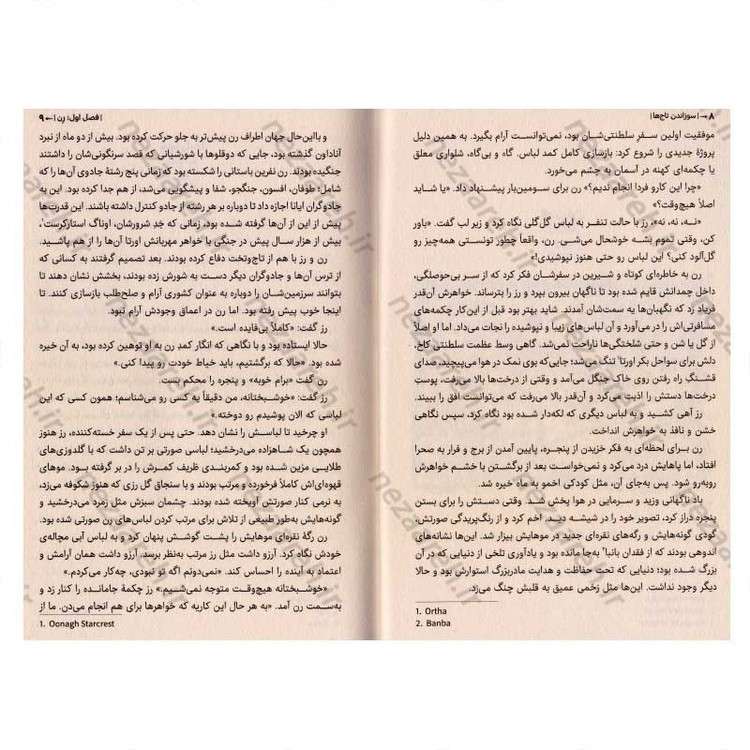 ۸ → | سوزاندن تاج‌ها |
موفقیت اولین سفر سلطنتی‌شان بود، نمی‌توانست آرام بگیرد. به همین دلیل
پروژهٔ جدیدی را شروع کرد: بازسازی کامل کمد لباس. گاه و بی‌گاه، شلواری معلق
یا چکمه‌ای کهنه در آسمان به چشم می‌خورد.
«چرا این کارو فردا انجام ندیم؟» رن برای سومین‌بار پیشنهاد داد. «یا شاید
اصلاً هیچ‌وقت؟»
«نـه، نه، نه»، رز با حالت تنفر به لباس گل‌گلی نگاه کرد و زیر لب گفت. «باور
کن، وقتی تموم بشه خوشحال می‌شی. رن، واقعاً چطور تونستی همه‌چیز رو
گل‌آلود کنی؟ این لباس رو حتی هنوز نپوشیدی!»
رن به خاطره‌ای کوتاه و شیرین در سفرشان فکر کرد که از سر بی‌حوصلگی،
داخل چمدانش قایم شده بود تا ناگهان بیرون بپرد و رز را بترساند. خواهرش آن‌قدر
فریاد زد که نگهبان‌ها به سمت‌شان آمدند. شاید بهتر بود قبل از این‌کار چکمه‌های
مسافرتی‌اش را در می‌آورد و آن لباس‌های زیبا و نپوشیده را نجات می‌داد. اما او اصلاً
از گل یا شن و حتی شلختگی‌ها ناراحت نمی‌شد. گاهی وسط عظمت سلطنتی کاخ،
دلش برای سواحل بکر اورتا¹ تنگ می‌شد؛ جایی‌که بوی نمک در هوا می‌پیچید، صدای
قشنگِ راه رفتن روی خاک جنگل می‌آمد و وقتی از درخت‌ها بالا می‌رفت، پوستِ
درخت‌ها دستش را اذیت می‌کرد و آن‌قدر بالا می‌رفت که می‌توانست افق را ببیند.
رز آهی کشید و به لباس دیگری که لکه‌دار شده بود نگاه کرد، سپس نگاهی
خشن و نافذ به خواهرش انداخت.
رن برای لحظه‌ای به فکر خزیدن از پنجره، پایین آمدن از برج و فرار به صحرا
افتاد، اما پاهایش درد می‌کرد و نمی‌خواست بعد از برگشتن با خشم خواهرش
روبه‌رو شود. پس به‌جای آن، مثل کودکی اخمو به ماه خیره شد.
باد ناگهانی وزید و سرمایی در هوا پخش شد. وقتی دستش را برای بستن
پنجره دراز کرد، تصویر خود را در شیشه دیـد. اخم کرد و از رنگ‌پریدگی صورتش،
گودی گونه‌هایش و رگه‌های نقره‌ای جدید در موهایش بیزار شد. این‌ها نشانه‌های
اندوهی بودند که از فقدان بانبا² به‌جا مانده بود و یادآوری تلخی از دنیایی که در آن
بزرگ شده بود؛ دنیایی که تحت حفاظت و هدایت مادربزرگ استوارش بود و حالا
دیگر وجود نداشت. این‌ها مثل زخمی عمیق به قلبش چنگ می‌زد.
1. Ortha
2. Banba
| فصل اول: رن | ← ۹
و بااین‌حال جهان اطراف رن پیش‌تر به جلو حرکت کرده بود. بیش از دو ماه از نبرد
آناداون گذشته بود، جایی که دوقلوها با شورشیانی که قصد سرنگونی‌شان را داشتند
جنگیده بودند. رن نفرین باستانی را شکسته بود که زمانی پنج رشتهٔ جادوی آن‌ها را که
شامل: طوفان، افسون، جنگجو، شفا و پیشگویی می‌شد، از هم جدا کرده بود. این به
جادوگران ایانا اجازه داد تا دوباره بر هر رشته از جادو کنترل داشته باشند. این قدرت‌ها
پیش از این از آن‌ها گرفته شده بود، زمانی که جدِ شرورشان، اوناگ استارکرست¹،
بیش از هزار سال پیش در جنگی با خواهر مهربانش اورتا آن‌ها را از هم پاشید.
رن و رز با هم از تاج‌وتخت دفاع کرده بودند. بعد تصمیم گرفتند به کسانی که
از ترس آن‌ها و جادوگران دیگر دست به شورش زده بودند، بخشش نشان دهند تا
بتوانند سرزمین‌شان را دوباره به عنوان کشوری آرام و صلح‌طلب بازسازی کنند. تا
اینجا خوب پیش رفته بود. اما رن در اعماق وجودش آرام نبود.
رز گفت: «کاملاً بی‌فایده است.»
حالا ایستاده بود و با نگاهی که انگار کمدِ رن به او توهین کرده بود، به آن خیره
شده بود. «حالا که برگشتیم، باید خیاط خودت رو پیدا کنی.»
رن گفت «برام خوبه» و پنجره را محکم بست.
رز گفت: «خوشبختانه، من دقیقاً یه کسی رو می‌شناسم؛ همون کسی که این
لباسی که الان پوشیدم رو دوخته.»
او چرخید تا لباسـش را نشان دهد. حتی پس از یک سفر خسته‌کننده، رز هنوز
همچون یک شاهزاده می‌درخشید؛ لباسی صورتی بر تن داشت که با گلدوزی‌های
طلایـی مزین شده بود و کمربندی ظریف کمرش را در بر گرفته بود. موهای
قهوه‌ای‌اش کاملاً فرخورده و مرتب بودند و با سنجاق گل رزی که هنوز شکوفه می‌زد،
به نرمی کنار صورتش آویخته شده بودند. چشمان سبزش مثل زمرد می‌درخشید و
گونه‌هایش به‌طور طبیعی از تلاش برای مرتب کردن لباس‌های رن صورتی شده بود.
رن رگهٔ نقره‌ای موهایش را پشت گوشش پنهان کرد و به لباس آبی مچاله‌ی
خودش نگاه کرد. آرزو داشت مثل رز مرتب به‌نظر برسد. آرزو داشت همان آرامش و
اعتماد به آینده را احساس کند. «نمی‌دونم اگه تو نبودی، چه‌کار می‌کردم.»
«خوشـبختانه هیچ‌وقت متوجه نمی‌شیم.» رز چکمهٔ جامانده را کنار زد و
به‌سمت رن آمد. «به هر حال این کاریه که خواهرها برای هم انجام می‌دن. ما از
1. Oonagh Starcrest
nezaareh.ir